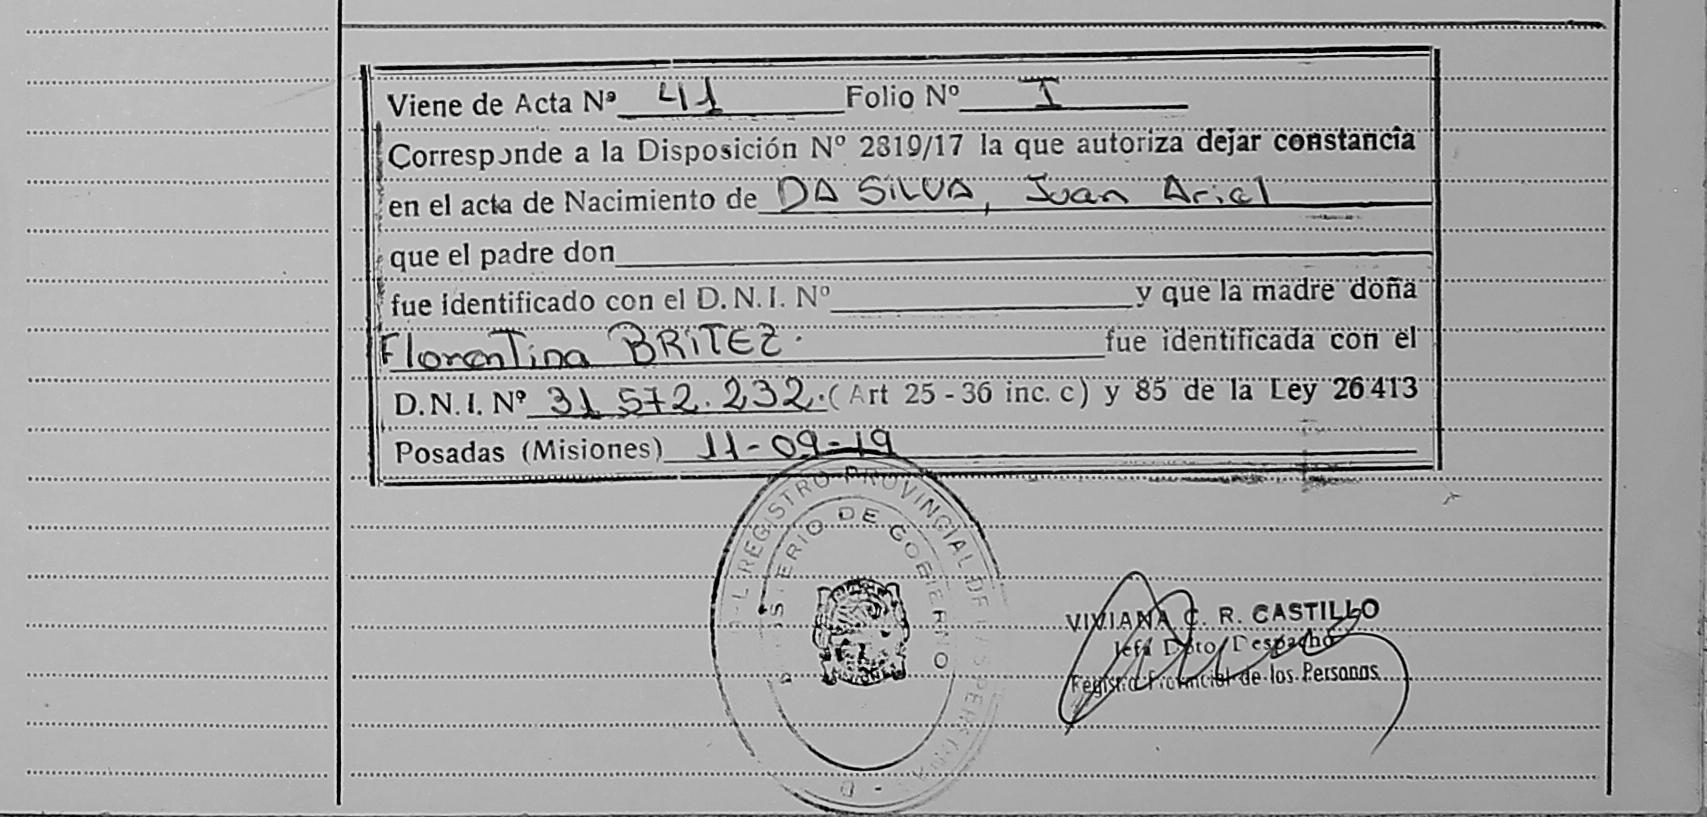 Viene de Acta Nº 41 Folio Nº I
Corresponde a la Disposición Nº 2819/17 la que autoriza dejar constancia
en el acta de Nacimiento de DA SILVA, Juan Ariel
que el padre don
fue identificado con el D.N.I. Nº y que la madre doña
Florentina BRITEZ. fue identificada con el
D.N.I. Nº 31 572.232. (Art 25 - 36 inc. c) y 85 de la Ley 26413
Posadas (Misiones) 11-09-19
REGISTRO PROVINCIAL DE
DE GOBIERNO
VIVIANA C. R. CASTILLO
Jefa Dpto Despacho
Registro Provincial de los Personas